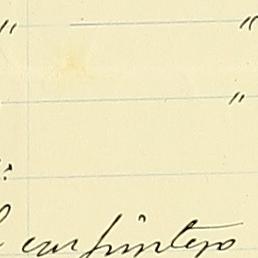 " "
"
carpintero